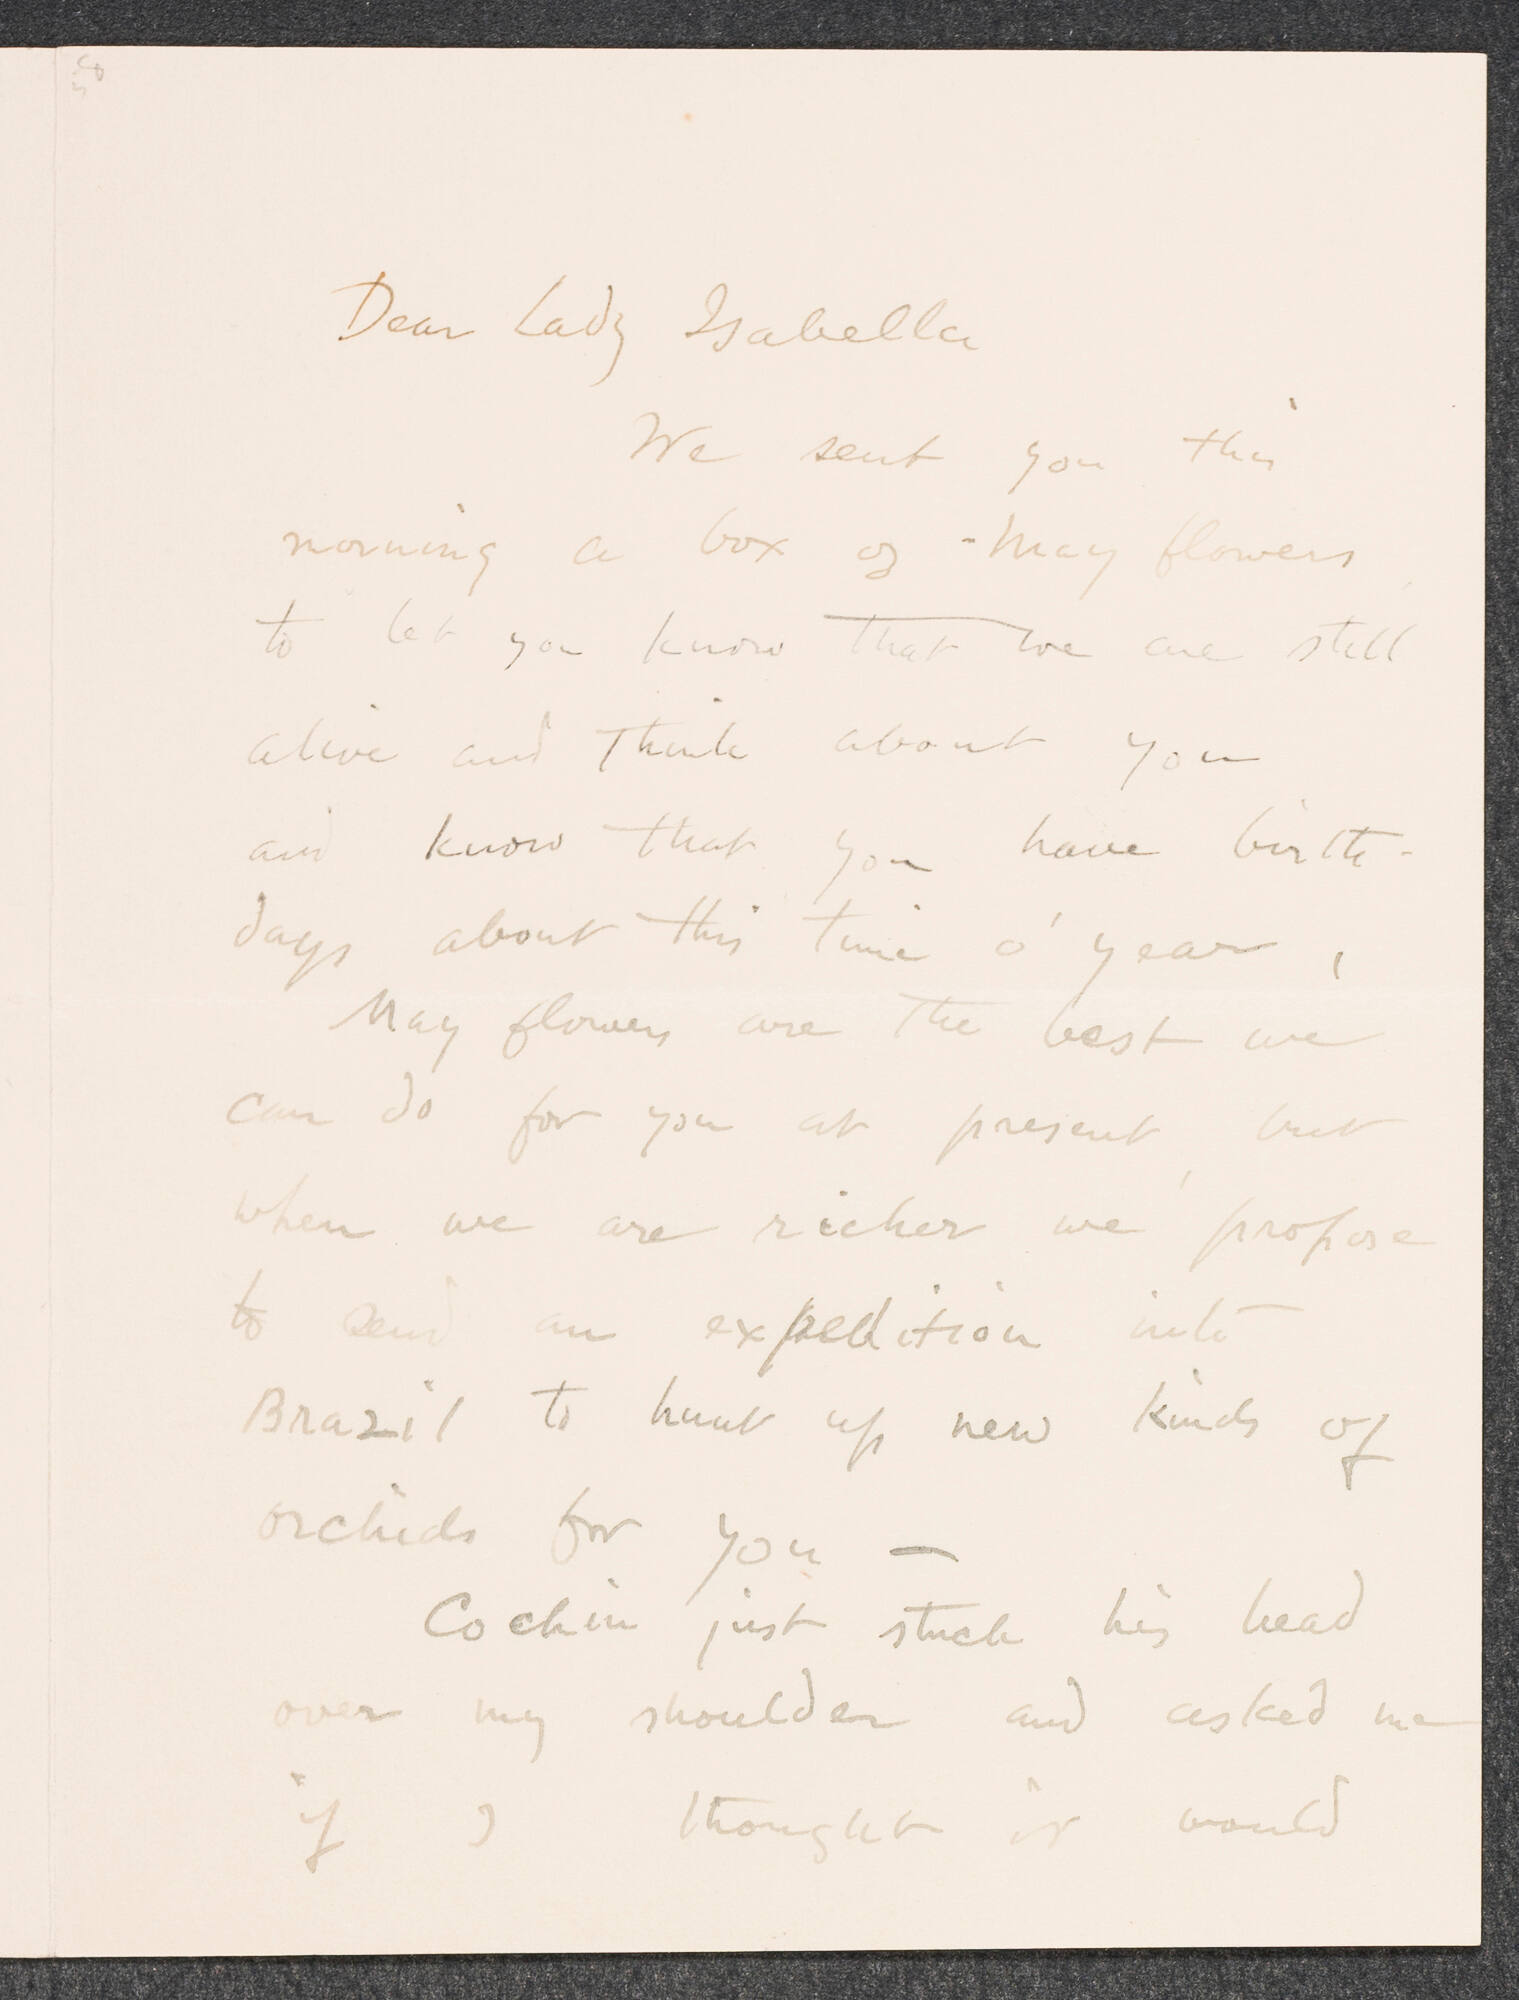 Dear Lady Isabella
We sent you this
morning a box of May flowers
to let you know that we are still
alive and think about you
and know that you have birth-
days about this time o' year,
May flowers are the best we
can do for you at present, but
when we are richer we propose
to send an expedition into
Brazil to hunt up new kinds of
orchids for you —
Cochin just stuck his head
over my shoulder and asked me
if I thought it would